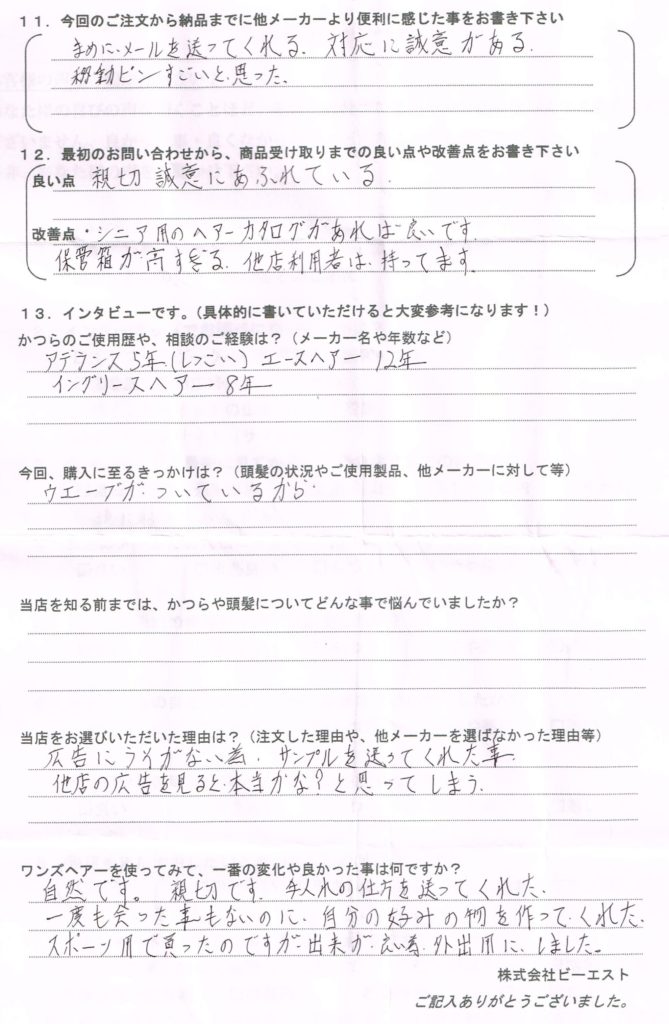 11．今回のご注文から納品までに他メーカーより便利に感じた事をお書き下さい
まめに、メールを送ってくれる。対応に誠意がある。
移動ピンすごいと思った。
12．最初のお問い合わせから、商品受け取りまでの良い点や改善点をお書き下さい
良い点 親切 誠意にあふれている。
改善点・シニア用のヘアーカタログがあれば良いです。
保管箱が高すぎる。他店利用者は、持ってます。
13．インタビューです。（具体的に書いていただけると大変参考になります！）
かつらのご使用歴や、相談のご経験は？（メーカー名や年数など）
アデランス5年（しつこい）エースヘアー 12年
イングリースヘアー 8年
今回、購入に至るきっかけは？（頭髪の状況やご使用製品、他メーカーに対して等）
ウエーブがついているから
当店を知る前までは、かつらや頭髪についてどんな事で悩んでいましたか？
当店をお選びいただいた理由は？（注文した理由や、他メーカーを選ばなかった理由等）
広告にウソがない為。サンプルを送ってくれた事。
他店の広告を見ると、本当かな？と思ってしまう。
ワンズヘアーを使ってみて、一番の変化や良かった事は何ですか？
自然です。親切です。手入れの仕方を送ってくれた。
一度も会った事もないのに、自分の好みの物を作ってくれた。
スポーツ用で買ったのですが、出来が良い為、外出用に、しました。
株式会社ビーエスト
ご記入ありがとうございました。